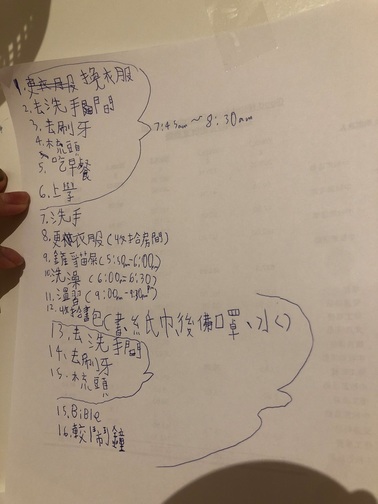 1. 換衣服
2. 去洗手間
3. 去刷牙
4. 梳頭
5. 吃早餐
6. 上學
7:45am ~ 8:30am
7. 洗手
8. 更衣服(收拾房間)
9. 貓尿(5:50-6:00)
10. 洗澡 (6:00-6:30)
11. 温習(9:00
12. 收拾書包(書、紙巾後備口罩、水)
13. 去洗手間
14. 去刷牙
15. 梳頭
15. Bible
16. 較鬧鐘